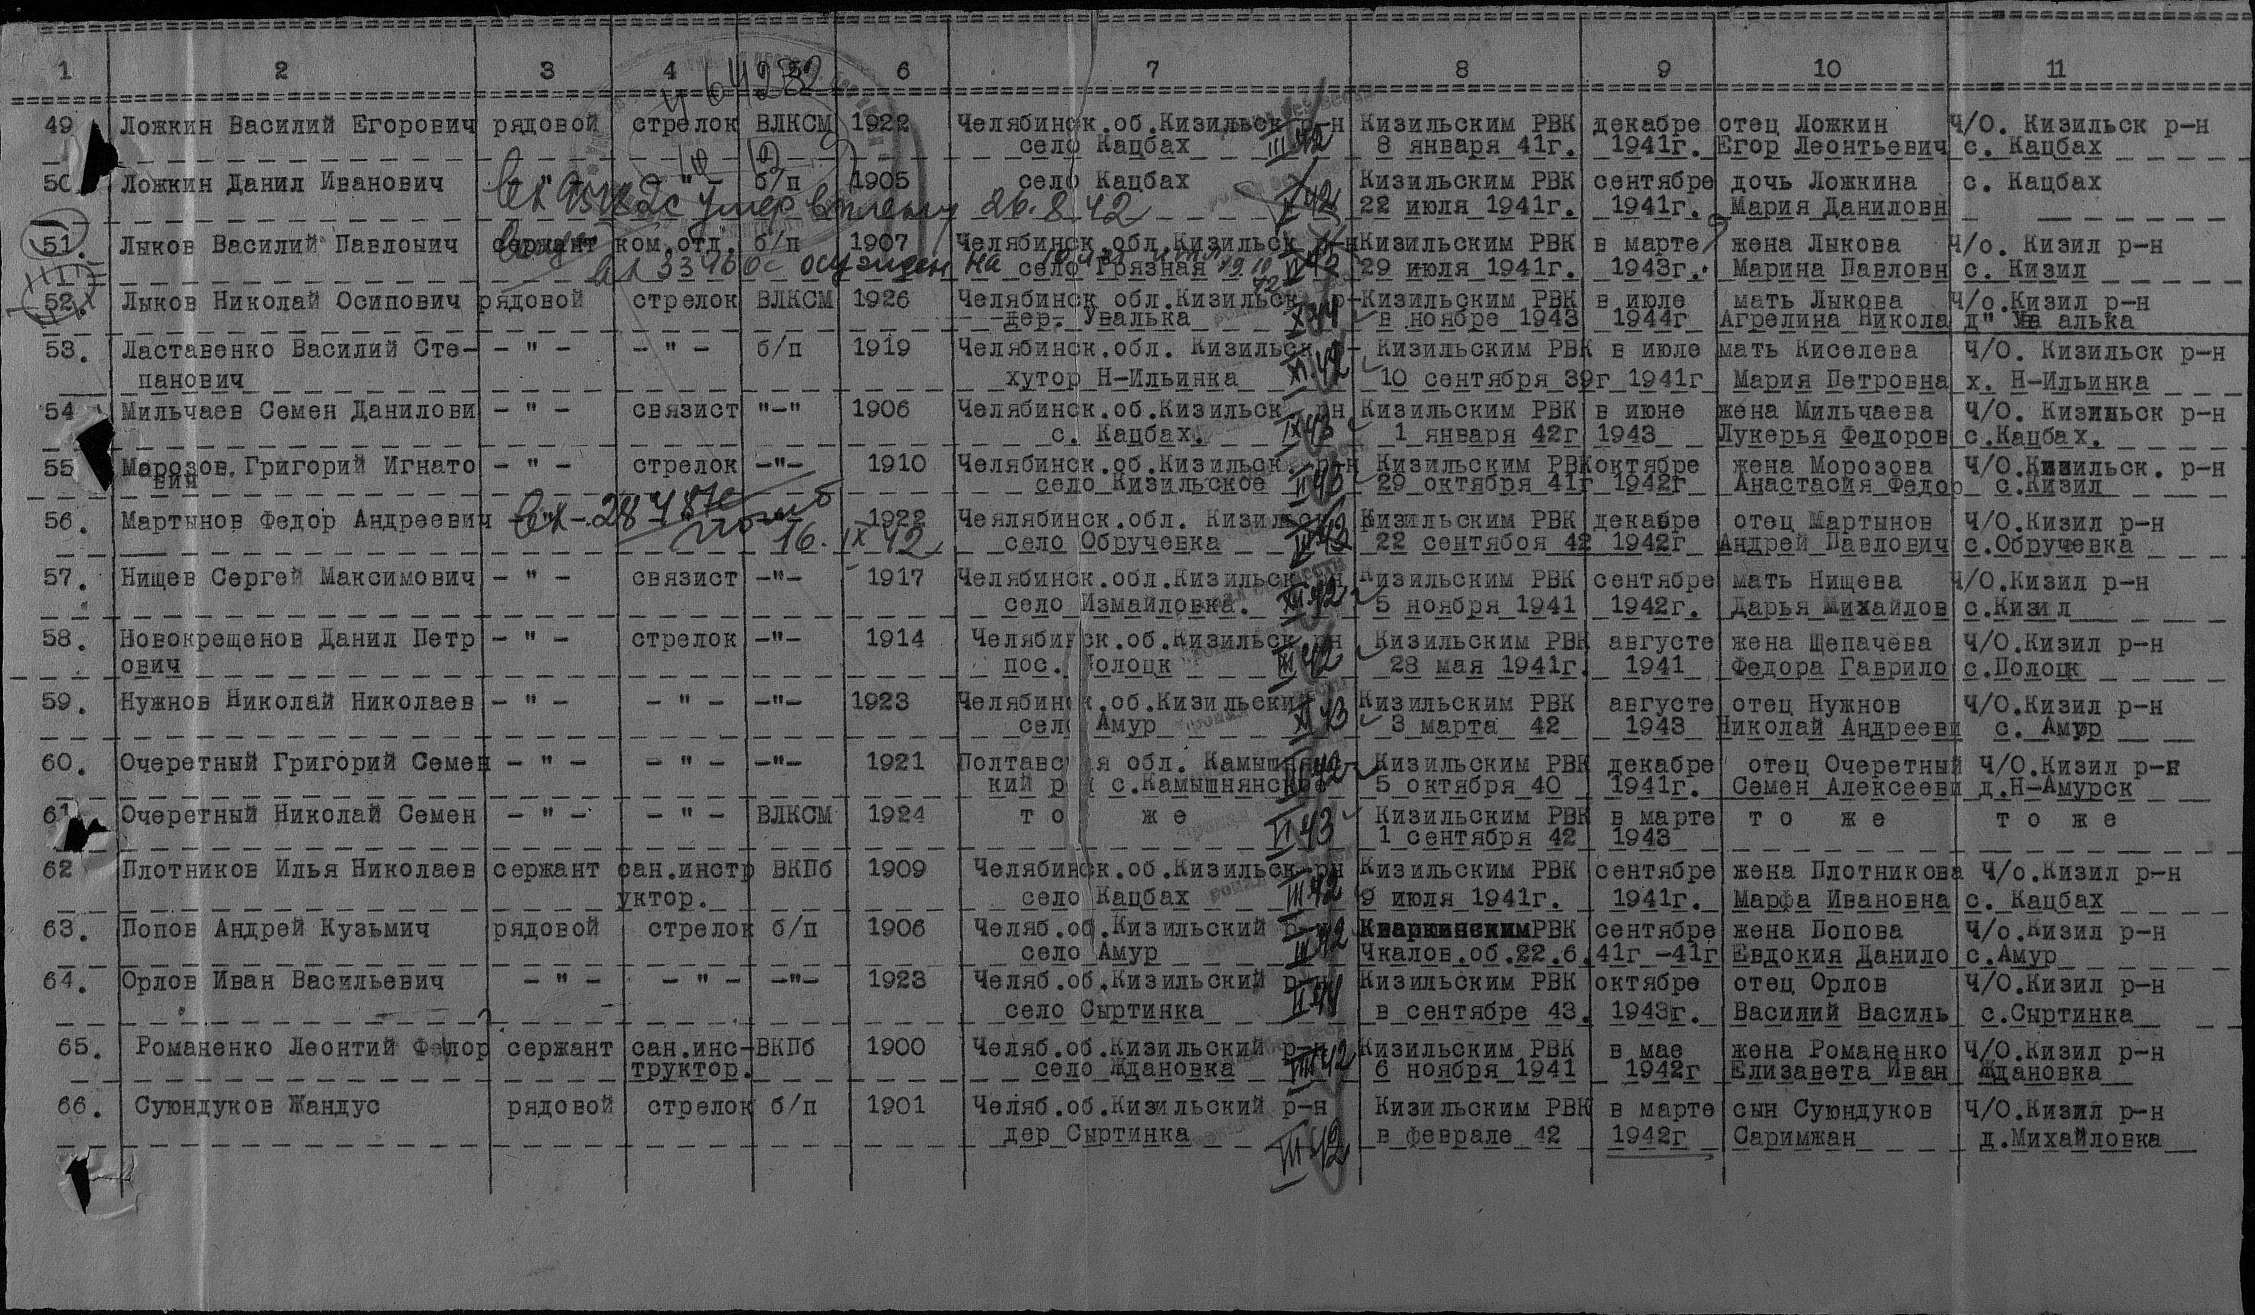 1 2 3 4 5 6 7 8 9 10 11
49 Ложкин Василий Егорович рядовой стрелок ВЛКСМ 1922 Челябинск.об.Кизильск р-н Кизильским РВК декабре отец Ложкин Ч/О. Кизильск р-н
село Кацбах III 42 8 января 41г. 1941г. Егор Леонтьевич с. Кацбах
50 Ложкин Данил Иванович - " - - " - б/п 1905 село Кацбах Кизильским РВК сентябре дочь Ложкина с. Кацбах
умер в плену 26.8.42 22 июля 1941г. 1941г. Мария Даниловн
51. Лыков Василий Павлоыич сержант ком.отд. б/п 1907 Челябинск.обл.Кизильск р-н Кизильским РВК в марте жена Лыкова Ч/о. Кизил р-н
осужден на село Грязная 29 июля 1941г. 1943г. Марина Павловн с. Кизил
52. Лыков Николай Осипович рядовой стрелок ВЛКСМ 1926 Челябинск обл.Кизильск р- Кизильским РВК в июле мать Лыкова Ч/о.Кизил р-н
дер. Увалька в ноябре 1943 1944г Агрелина Никола д" Ув алька
53. Ластавенко Василий Сте- - " - - " - б/п 1919 Челябинск.обл. Кизильск Кизильским РВК в июле мать Киселева Ч/О. Кизильск р-н
панович хутор Н-Ильинка 10 сентября 39г 1941г Мария Петровна х. Н-Ильинка
54 Мильчаев Семен Данилови - " - связист "-" 1906 Челябинск.об.Кизильск рн Кизильским РВК в июне жена Мильчаева Ч/О. Кизильск р-н
с. Кацбах. 1 января 42г 1943 Лукерья Федоров с.Кацбах.
55 Морозов Григорий Игнато - " - стрелок -"- 1910 Челябинск.об.Кизильск. р-н Кизильским РВК октябре жена Морозова Ч/О.Кизильск. р-н
вич село Кизильское 29 октября 41г 1942г Анастасия Федор с.Кизил
56. Мартынов Федор Андреевич 1922 Чеялябинск.обл. Кизильск Кизильским РВК декабре отец Мартынов Ч/О.Кизил р-н
погиб 16.IX 42 село Обручевка 22 сентябоя 42 1942г Андрей Павлович с.Обручевка
57. Нищев Сергей Максимович - " - связист -"- 1917 Челябинск.обл.Кизильск Кизильским РВК сентябре мать Нищева Ч/О.Кизил р-н
село Измайловка. 5 ноября 1941 1942г. Дарья Михайлов с.Кизил
58. Новокрещенов Данил Петр - " - стрелок -"- 1914 Челябинск.об.Кизильск рн Кизильским РВК августе жена Щепачева Ч/О.Кизил р-н
ович пос. Полоцк 28 мая 1941г. 1941 Федора Гаврило с.Полоцк
59. Нужнов Николай Николаев - " - - " - -"- 1923 Челябинск.об.Кизильский Кизильским РВК августе отец Нужнов Ч/О.Кизил р-н
село Амур 3 марта 42 1943 Николай Андрееви с. Амур
60. Очеретный Григорий Семен - " - - " - -"- 1921 Полтавская обл. Камышнян Кизильским РВК декабре отец Очеретный Ч/О.Кизил р-н
кий р с.Камышнянское 5 октября 40 1941г. Семен Алексееви д.Н-Амурск
61 Очеретный Николай Семен - " - - " - ВЛКСМ 1924 т о ж е VI 43 Кизильским РВК в марте т о ж е т о ж е
1 сентября 42 1943
62 Плотников Илья Николаев сержант сан.инстр ВКПб 1909 Челябинск.об.Кизильск рн Кизильским РВК сентябре жена Плотникова Ч/о.Кизил р-н
уктор. село Кацбах III 42 9 июля 1941г. 1941г. Марфа Ивановна с. Кацбах
63. Попов Андрей Кузьмич рядовой стрелок б/п 1906 Челяб.об.Кизильский р-н КваркинскимРВК сентябре жена Попова Ч/о.Кизил р-н
село Амур Чкалов.об.22.6.41г -41г Евдокия Данило с.Амур
64. Орлов Иван Васильевич - " - - " - -"- 1923 Челяб.об.Кизильский р-н Кизильским РВК октябре отец Орлов Ч/О.Кизил р-н
село Сыртинка в сентябре 43. 1943г. Василий Василь с.Сыртинка
65. Романенко Леонтий Федор сержант сан.инс- ВКПб 1900 Челяб.об.Кизильский р-н Кизильским РВК в мае жена Романенко Ч/О.Кизил р-н
труктор. село Ждановка VIII 42 6 ноября 1941 1942г Елизавета Иван Ждановка
66. Суюндуков Жандус рядовой стрелок б/п 1901 Челяб.об.Кизильский р-н Кизильским РВК в марте сын Суюндуков Ч/О.Кизил р-н
дер Сыртинка III 42 в феврале 42 1942г Саримжан д.Михайловка